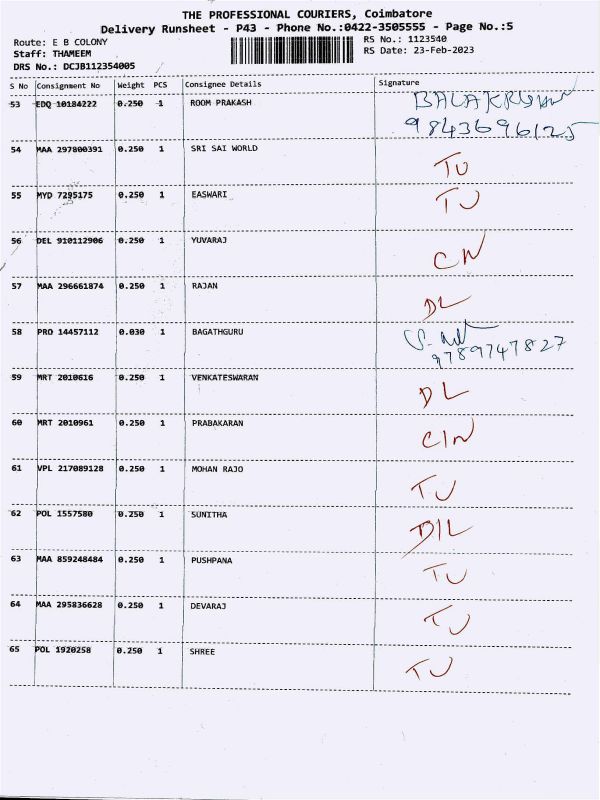 THE PROFESSIONAL COURIERS, Coimbatore
Delivery Runsheet - P43 - Phone No.:0422-3505555 - Page No.:5
Route: E B COLONY
Staff: THAMEEM
DRS No.: DCJB112354005
RS No.: 1123540
RS Date: 23-Feb-2023
S No Consignment No Weight PCS Consignee Details Signature
53 EDQ 10184222 0.250 1 ROOM PRAKASH
9843696125
54 MAA 297800391 0.250 1 SRI SAI WORLD TU
55 MYD 7295175 0.250 1 EASWARI TU
56 DEL 910112906 0.250 1 YUVARAJ CN
57 MAA 296661874 0.250 1 RAJAN DL
58 PRO 14457112 0.030 1 BAGATHGURU
9789747827
59 MRT 2010616 0.250 1 VENKATESWARAN DL
60 MRT 2010961 0.250 1 PRABAKARAN CIN
61 VPL 217089128 0.250 1 MOHAN RAJO TU
62 POL 1557580 0.250 1 SUNITHA DIL
63 MAA 859248484 0.250 1 PUSHPANA TU
64 MAA 295836628 0.250 1 DEVARAJ TU
65 POL 1920258 0.250 1 SHREE TU